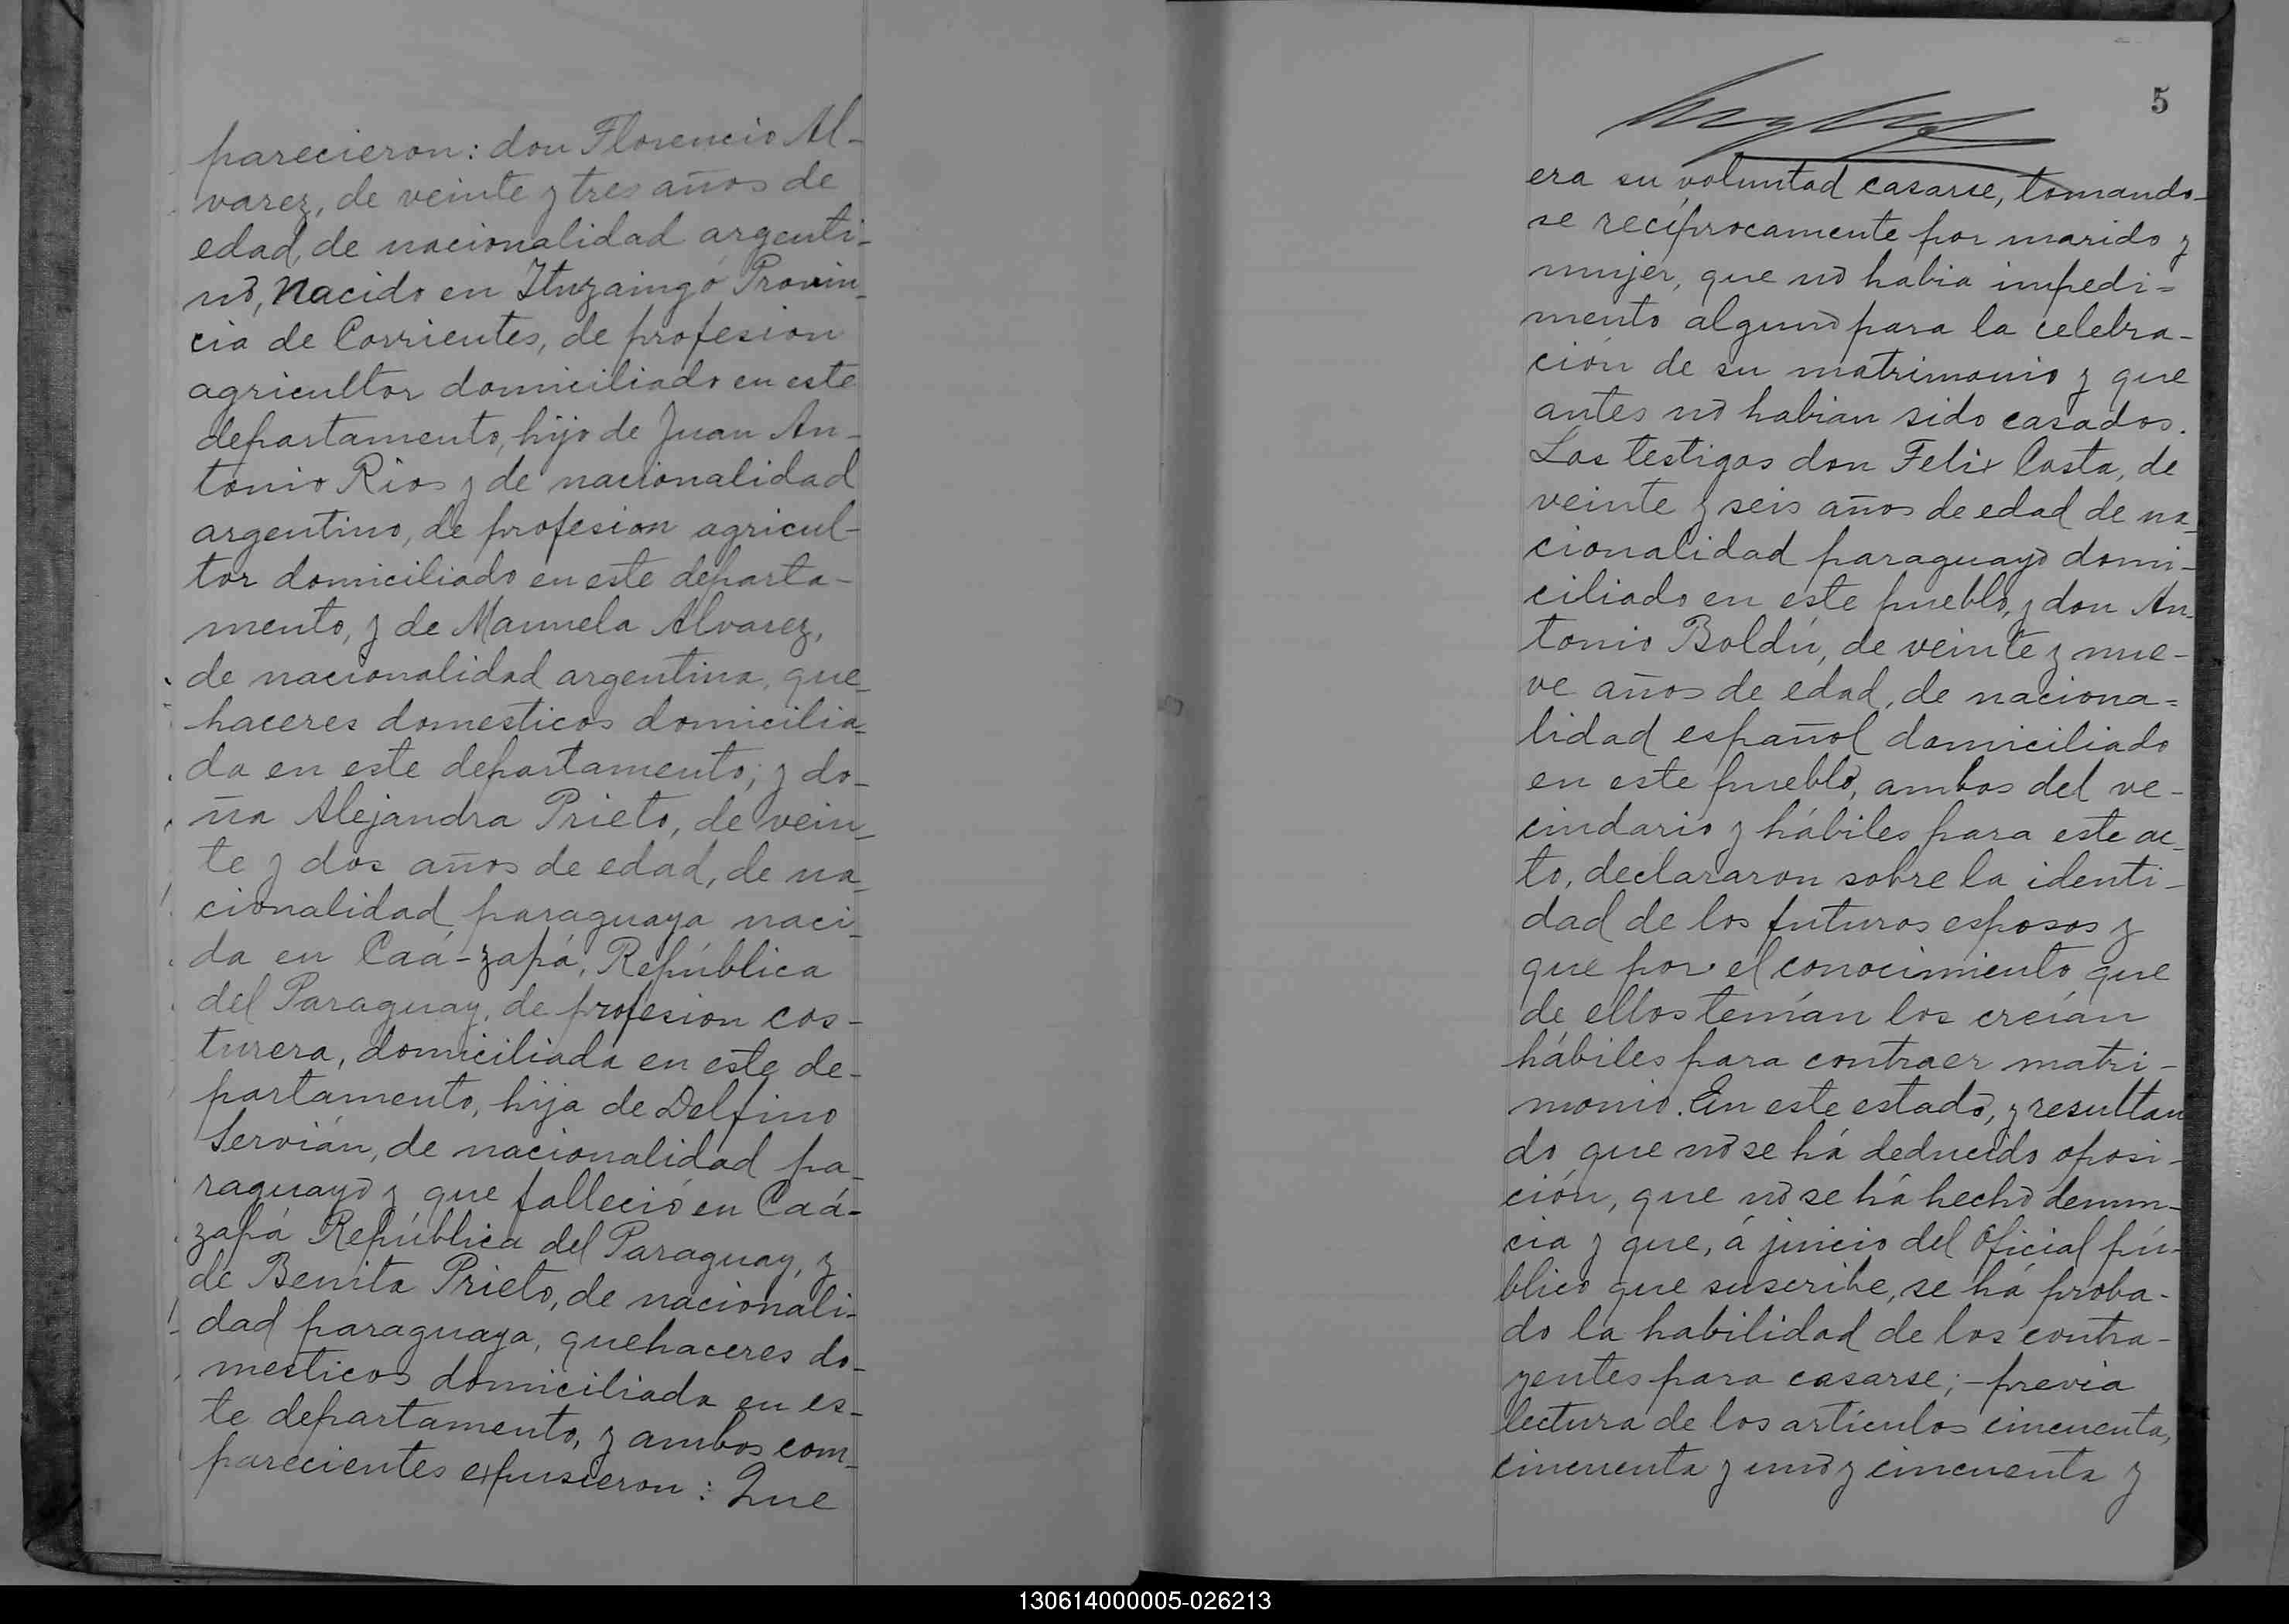 parecieron: don Florencio Al-
varez, de veinte y tres años de
edad, de nacionalidad argenti-
no, Nacido en Ituzaingó Provin-
cia de Corrientes, de profesion
agricultor domiciliado en este
departamento, hijo de Juan An-
tonio Rios y de nacionalidad
argentino, de profesion agricul-
tor domiciliado en este departa-
mento, y de Manuela Alvarez,
de nacionalidad argentina, que-
haceres domesticos domicilia-
da en este departamento; y do-
ña Alejandra Prieto, de vein-
te y dos años de edad, de na-
cionalidad paraguaya naci-
da en Caá-zapá, República
del Paraguay, de profesion cos-
turera, domiciliada en este de-
partamento, hija de Delfino
Servián, de nacionalidad pa-
raguayo y que falleció en Caá-
zapá República del Paraguay, y
de Benita Prieto, de nacionali-
dad paraguaya, quehaceres do-
mesticos domiciliada en es-
te departamento, y ambos com-
parecientes expusieron: Que
5
era su voluntad casarse, tomando-
se recíprocamente por marido y
mujer, que no habia impedi-
mento alguno para la celebra-
ción de su matrimonio y que
antes no habian sido casados.
Los testigos don Felix Costa, de
veinte y seis años de edad de na-
cionalidad paraguayo domi-
ciliado en este pueblo, y don An-
tonio Boldú, de veinte y nue-
ve años de edad, de naciona-
lidad español domiciliado
en este pueblo, ambos del ve-
cindario y hábiles para este ac-
to, declararon sobre la identi-
dad de los futuros esposos y
que por el conocimiento que
de ellos tenían los creían
hábiles para contraer matri-
monio. En este estado, y resultan
do que no se há deducido oposi-
ción, que no se há hecho denun-
cia y que, á juicio del Oficial pú-
blico que suscribe, se há proba-
do la habilidad de los contra-
yentes para casarse; - previa
lectura de los artículos cincuenta,
cincuenta y uno y cincuenta y
130614000005-026213